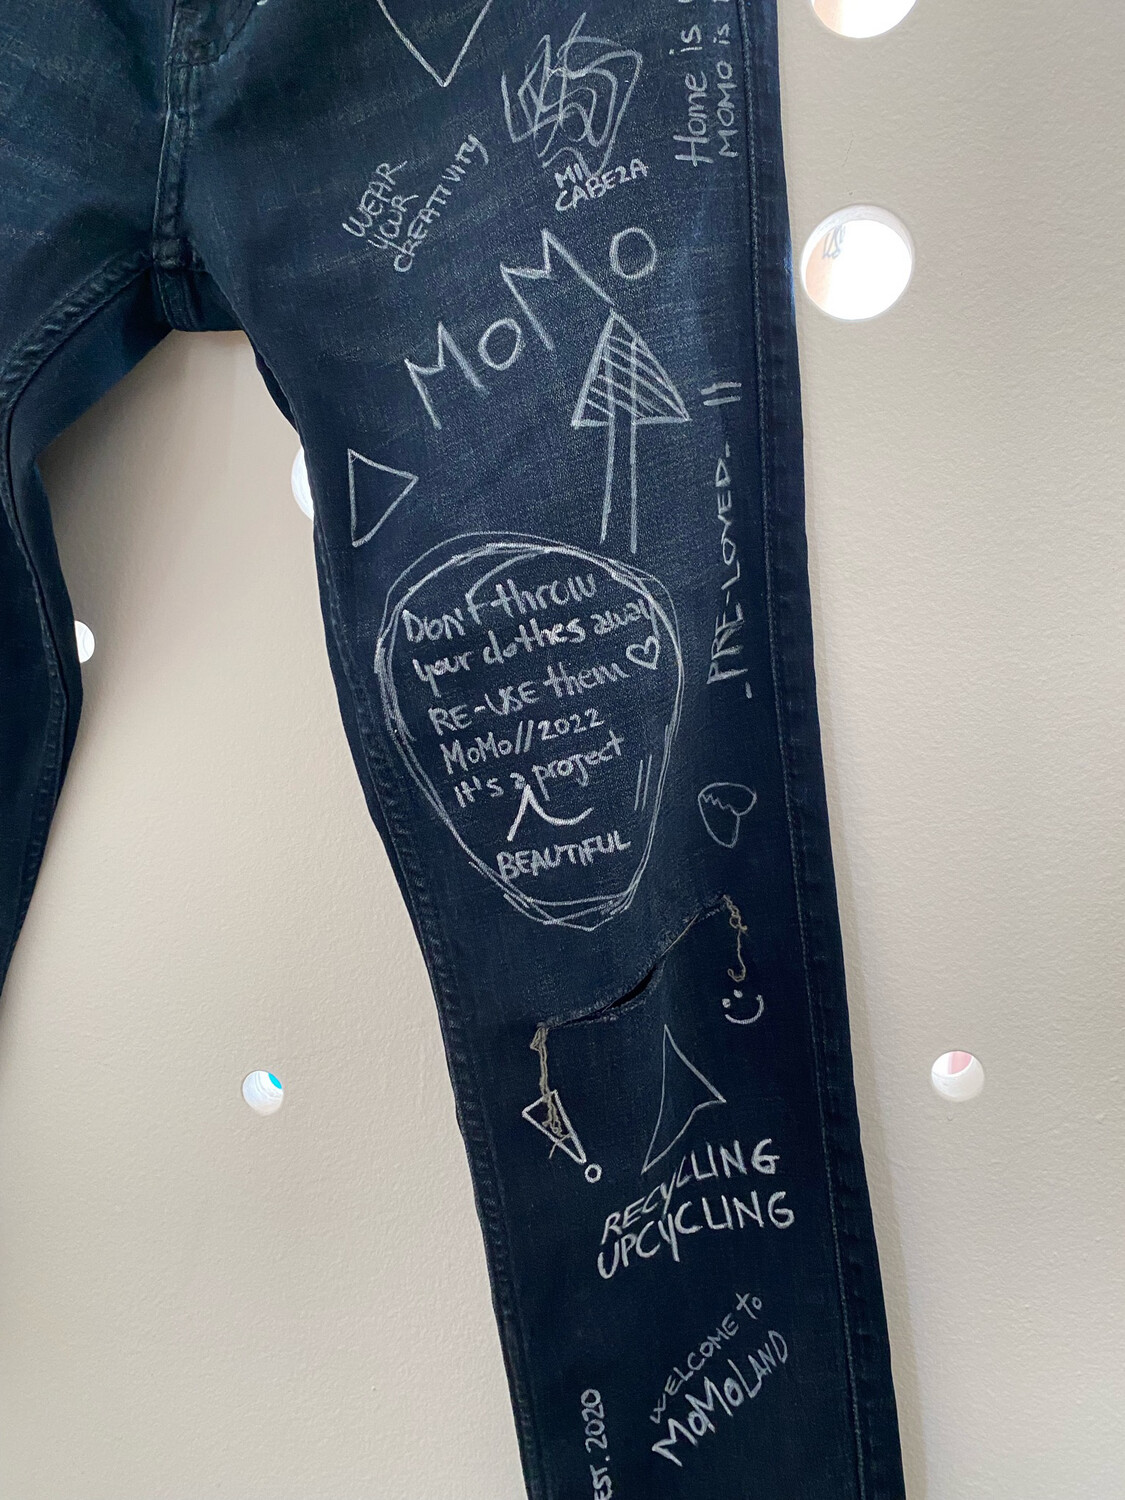 Home is
MOMO is
WEAR
YOUR
CREATIVITY
MIL
CABEZA
MoMo
PRE-LOVED
DON'T throw
your clothes away
RE-USE them
MoMo//2022
it's a project
BEAUTIFUL
RECYCLING
UPCYCLING
WELCOME to
MoMoLAND
EST. 2020